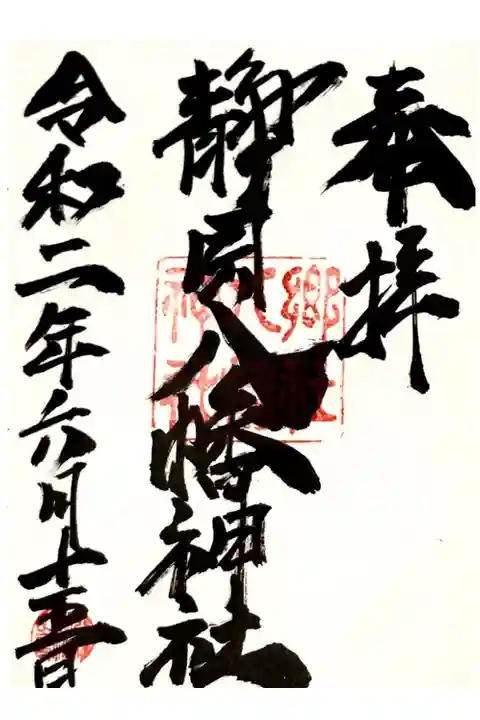 奉拝
静岡八幡神社
令和二年六月十五日